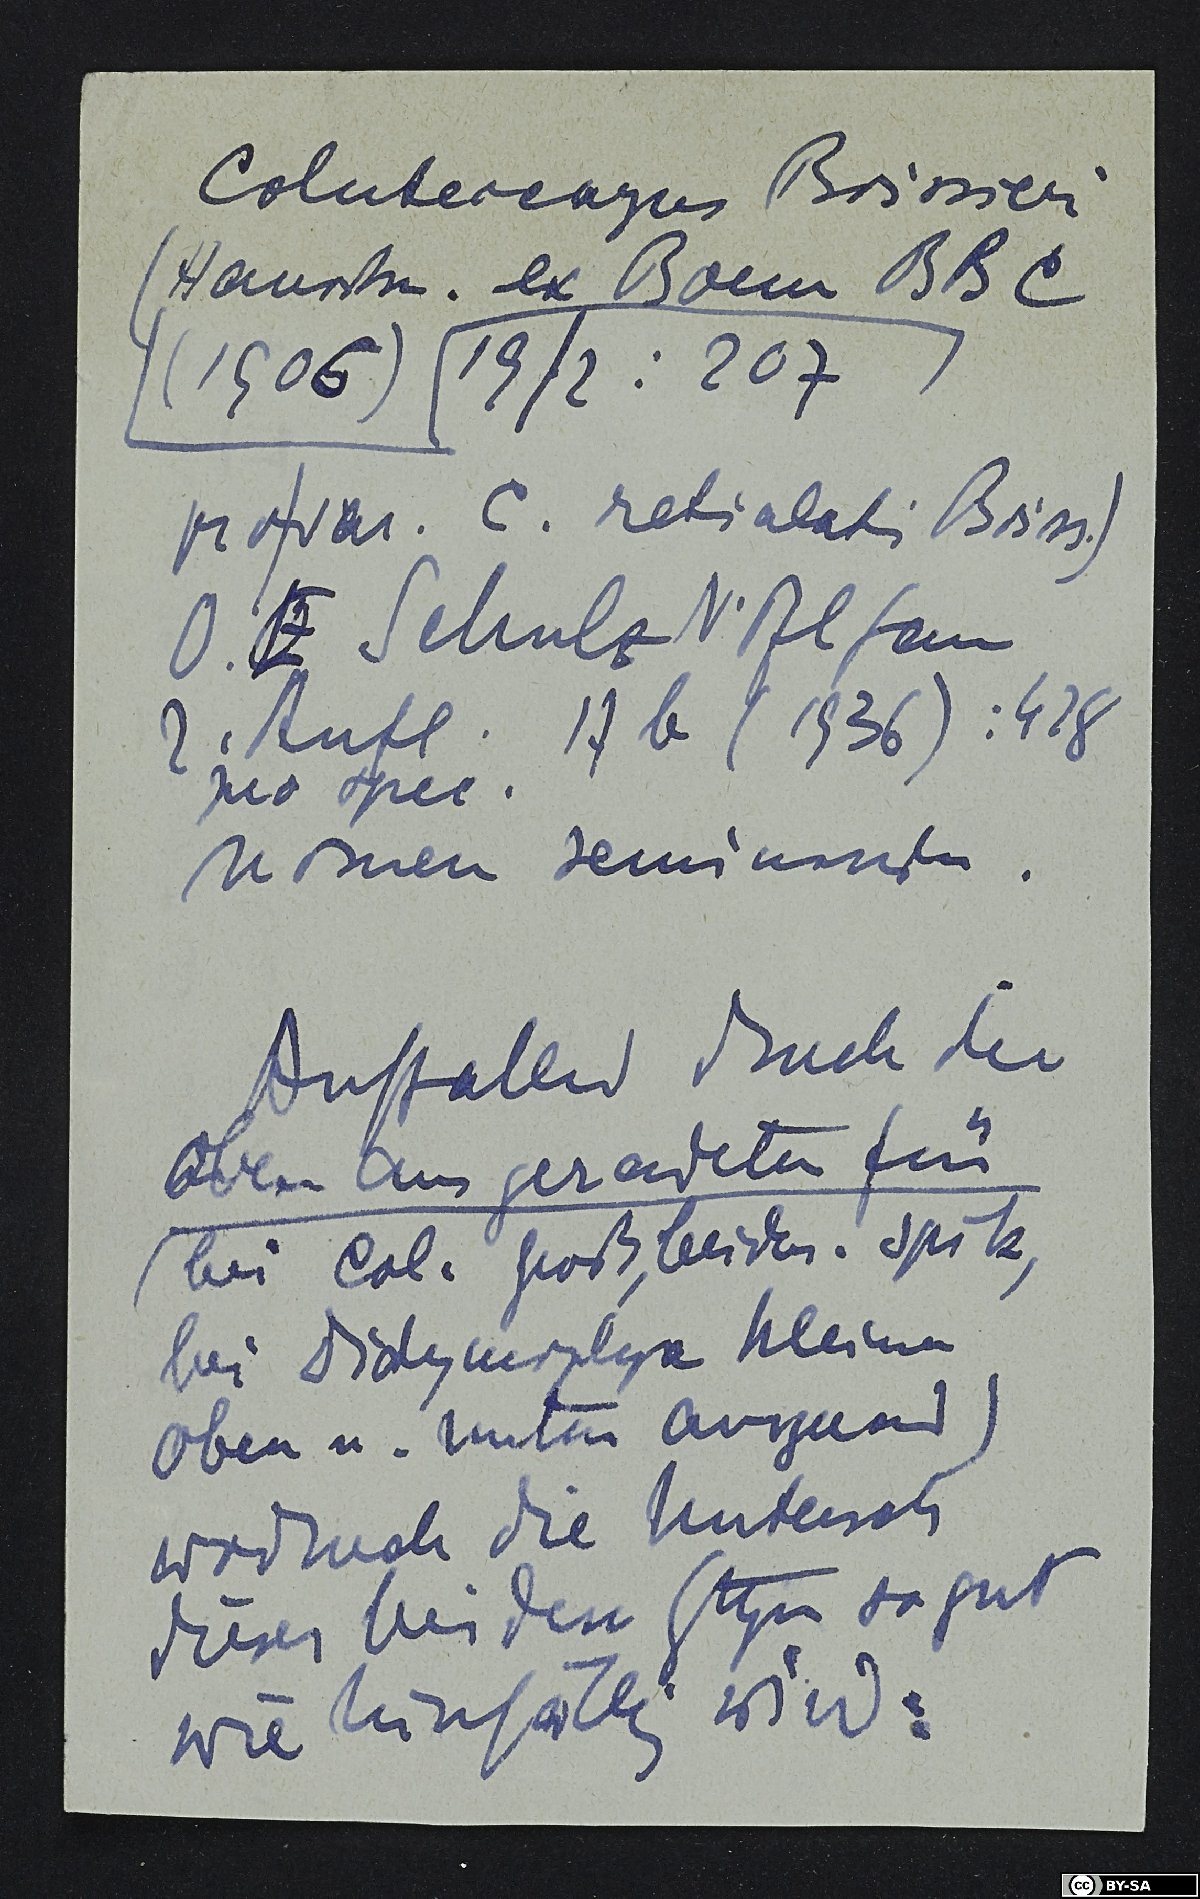 Coluteocarpus Boissieri
(Hausskn. ex Born BBC
(1906) 19/2 : 207
pro var. C. reticulati Boiss.)
O. E Schulz N. Pfl fam
2. Aufl. 17 b (1936) : 428
pro spec.
Nomen seminudum.
Auffallend durch die
oben ausgerandeten
(bei Col. groß, beiders. spitz,
bei Didymophysa kleiner
oben u. unten ausgerand)
wodurch die Untersch
dieser beiden Gttgn so gut
wie hinfällig wird:
BY-SA